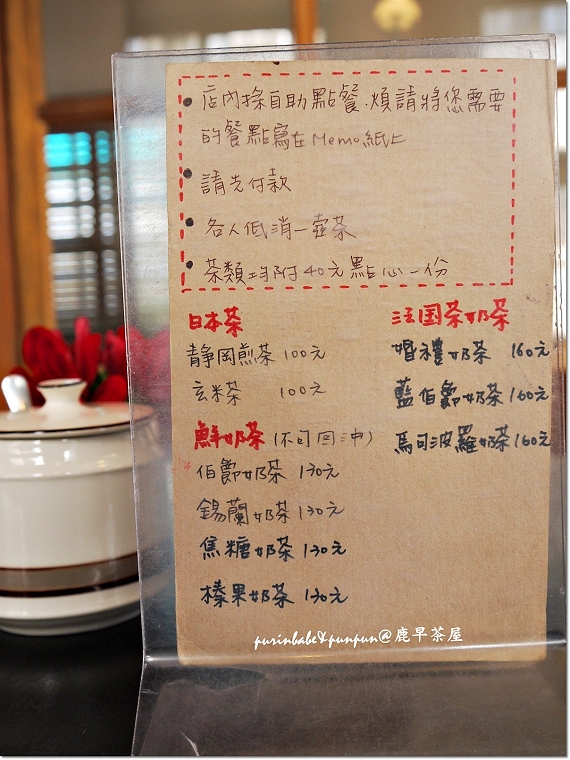 店內採自助點餐.煩請將您需要
的餐點寫在Memo紙上
請先付款
各人低消一壺茶
茶類均附40元點心一份
日本茶
靜岡煎茶 100元
玄米茶 100元
鮮奶茶(不可回沖)
伯爵奶茶 130元
錫蘭奶茶 130元
焦糖奶茶 130元
榛果奶茶 130元
法国茶奶茶
婚禮奶茶 160元
藍伯爵奶茶 160元
馬可波羅奶茶 160元
purinbabe&punpun@鹿早茶屋